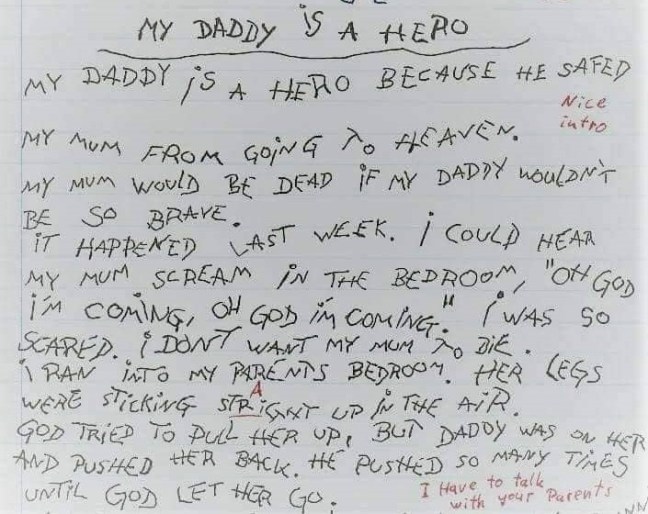 MY DADDY iS A HERO
MY DADDY iS A HERO BECAUSE HE SAFED
Nice
intro
MY MUM FROM GOiNG TO HEAVEN.
MY MUM WOULD BE DEAD iF MY DADDY WOULDN'T
BE SO BRAVE.
iT HAPPENED LAST WEEK. i COULD HEAR
MY MUM SCREAM iN THE BEDROOM, "OH GOD
i'M COMiNG, OH GOD i'M COMiNG." i WAS SO
SCARED. i DON'T WANT MY MUM TO DiE.
i RAN iNTO MY PARENTS BEDROOM. HER LEGS
A
WERE STiCKiNG STRiGHT UP iN THE AiR.
GOD TRiED TO PULL HER UP, BUT DADDY WAS ON HER
AND PUSHED HER BACK. HE PUSHED SO MANY TiMES
UNTiL GOD LET HER GO.
I Have to talk
with your Parents